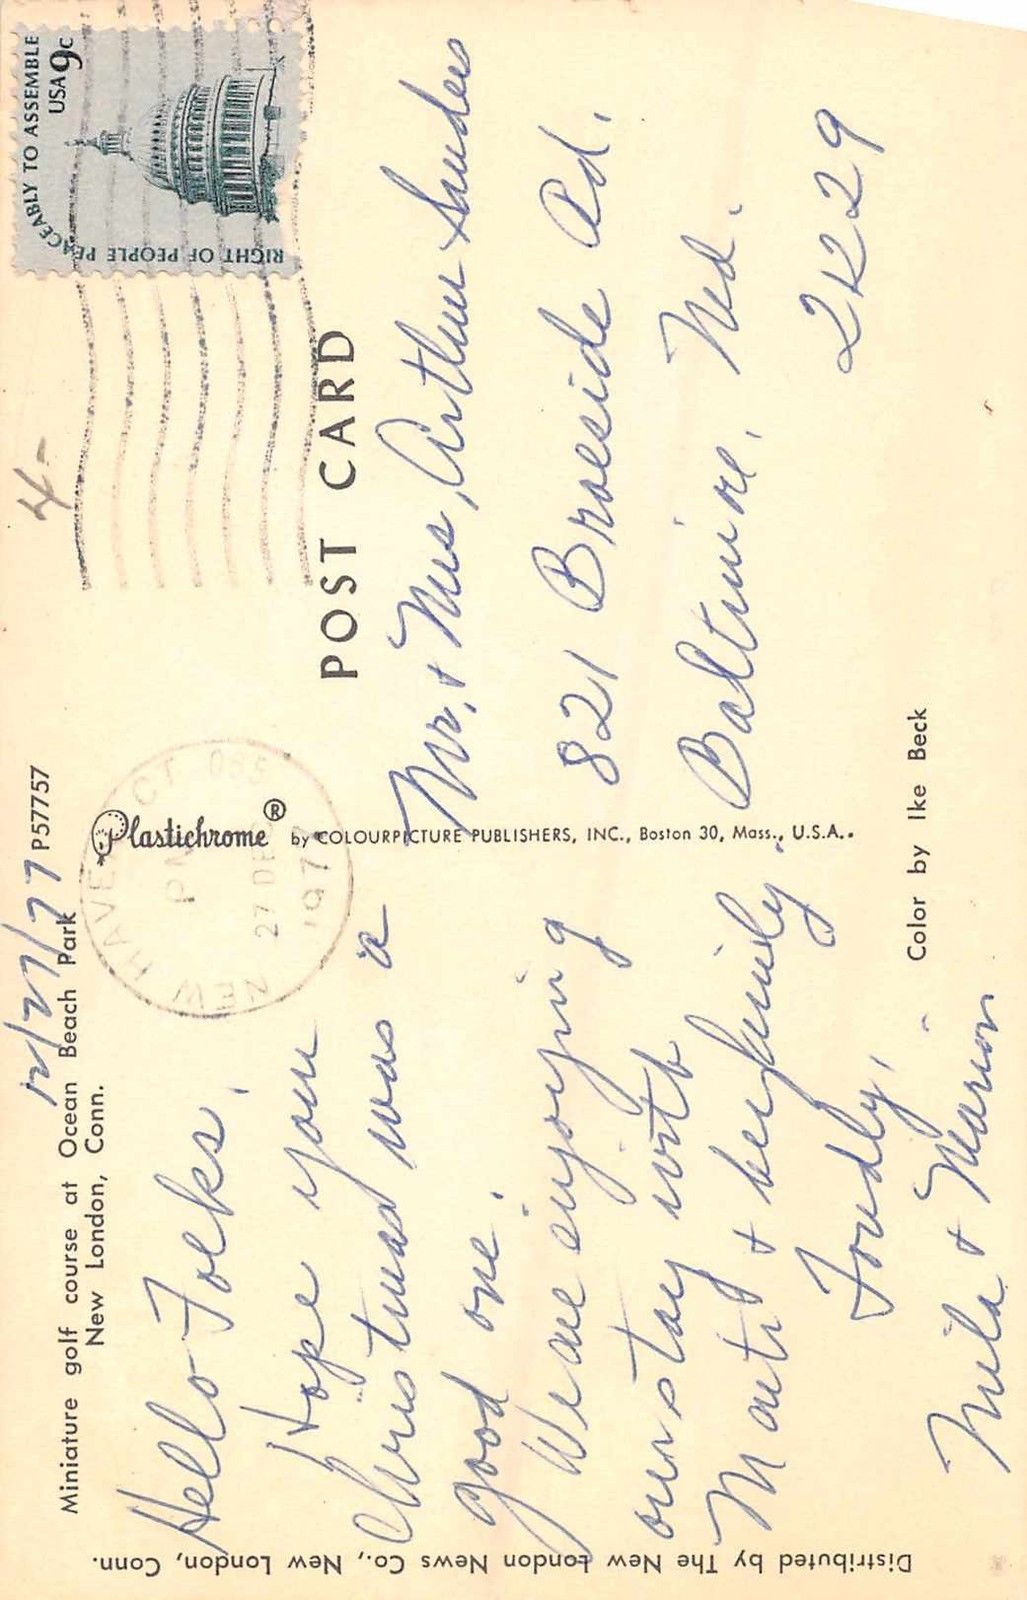 Miniature golf course at Ocean Beach Park
New London, Conn.
12/27/77
P57757
Hello Folks,
Hope your
Christmas was a
good one.
We are enjoying
our stay with
Marti & her family.
Fondly,
Mila & Marion
Distributed by The New London News Co., New London, Conn.
Plastichrome® by COLOURPICTURE PUBLISHERS, INC., Boston 30, Mass., U.S.A.
NEW HAVEN CT 065
PM
27 DEC
1977
4-
RIGHT OF PEOPLE PEACEABLY TO ASSEMBLE
USA 9c
POST CARD
Mr. & Mrs. Arthur
821 Braeside Rd.
Baltimore, Md.
21229
Color by Ike Beck